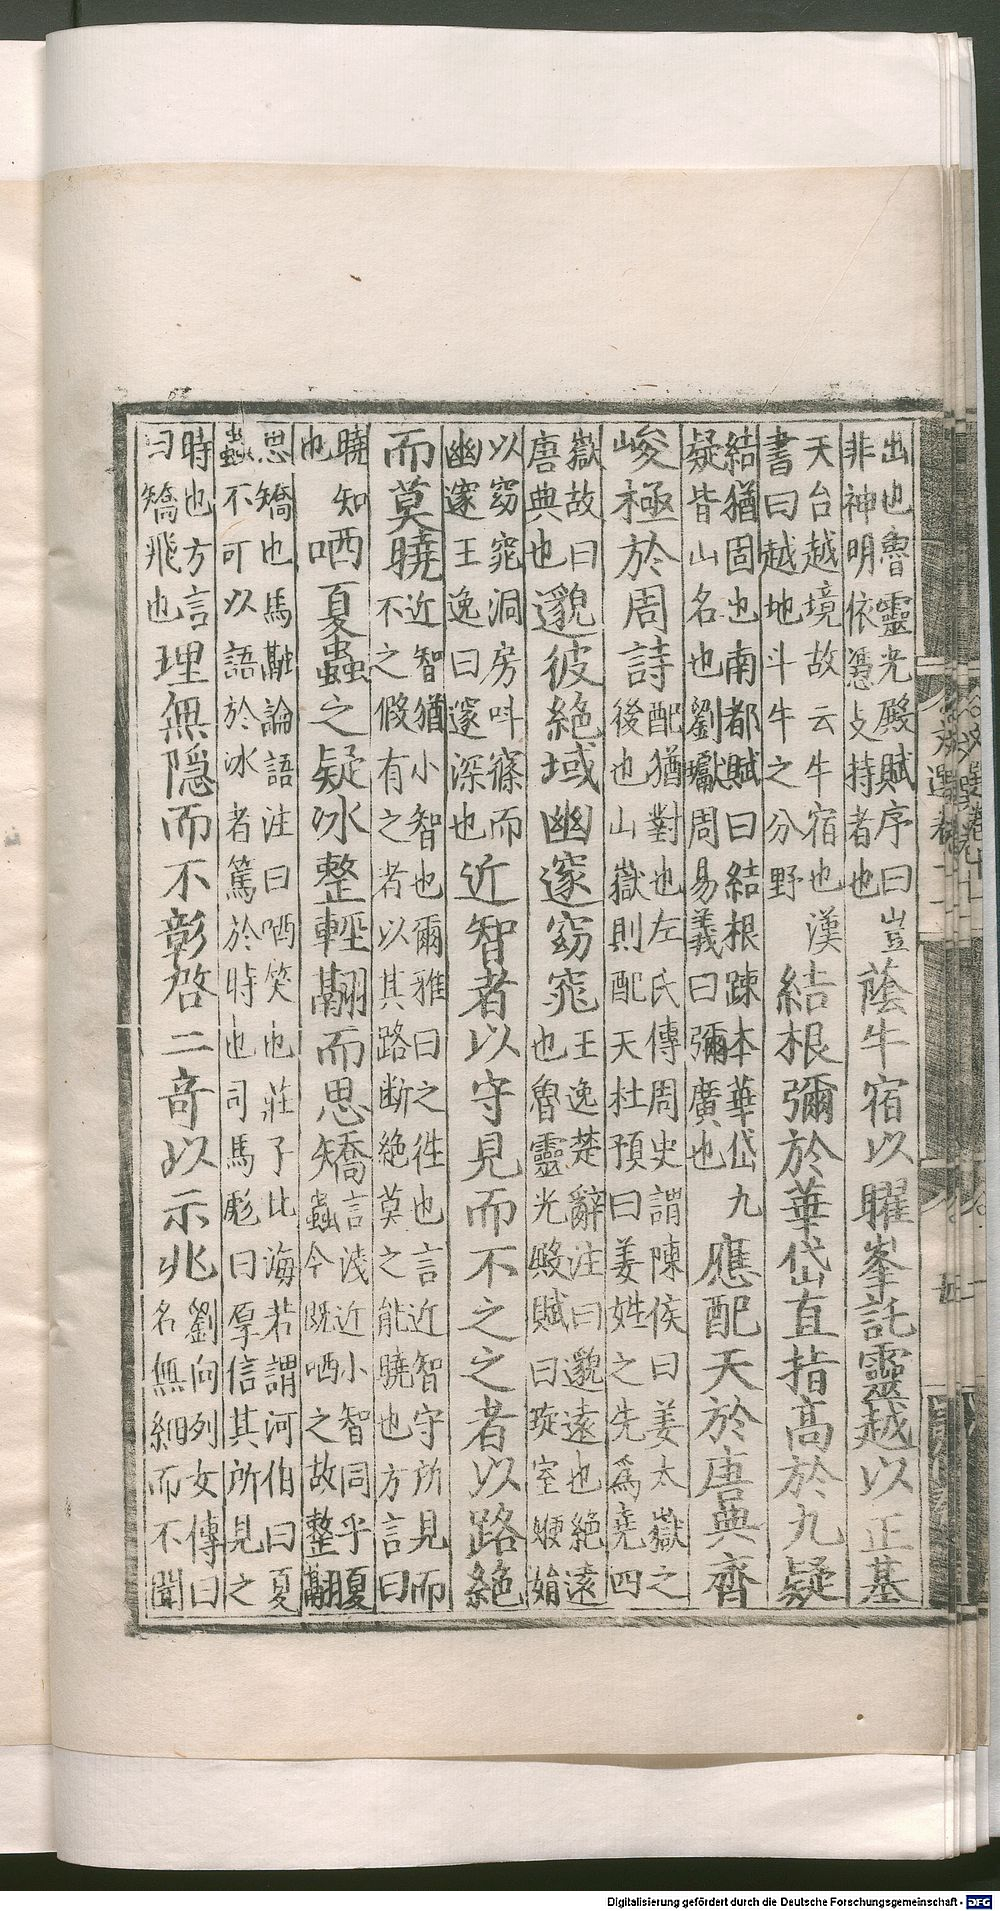 出也魯靈光殿賦序曰豈
非神明依憑支持者也
蔭牛宿以曜峯託靈越以正基
天台越境故云牛宿也漢
書曰越地斗牛之分野
結根彌於華岱直指髙於九疑
結猶固也南都賦曰結根踈本華岱九
疑皆山名也劉瓛周易義曰彌廣也
應配天於唐典齊
峻極於周詩
配猶對也左氏傳周史謂陳侯曰姜太嶽之
後也山嶽則配天杜預曰姜姓之先爲堯四
嶽故曰
唐典也
邈彼絶域幽邃窈窕
王逸楚辭注曰邈遠也絶遠
也魯靈光殿賦曰琁室㛹娟
以窈窕洞房叫窱而
幽邃王逸曰邃深也
近智者以守見而不之之者以路絶
而莫曉
近智猶小智也爾雅曰之徃也言近智守所見而
不之假有之者以其路断絶莫之能曉也方言曰
曉知
也
哂夏蟲之疑冰整輕翮而思矯
言淺近小智同乎夏
蟲今既哂之故整翮
思矯也馬融論語注曰哂笑也莊子比海若謂河伯曰夏
蟲不可以語於冰者篤於時也司馬彪曰厚信其所見之
時也方言
曰矯飛也
理無隱而不彰啓二竒以示兆
劉向列女傳曰
名無細而不聞